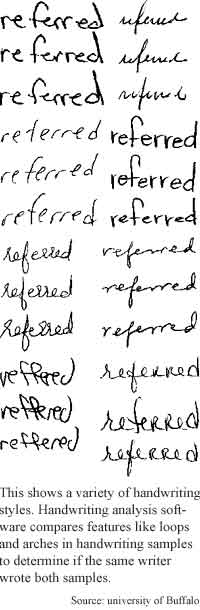 referred
referred
referred
referred
referred
referred
referred
referred
referred
reffered
reffered
reffered
referred
referred
referred
referred
referred
referred
referred
referred
referred
referred
referred
referred
This shows a variety of handwriting
styles. Handwriting analysis soft-
ware compares features like loops
and arches in handwriting samples
to determine if the same writer
wrote both samples.
Source: university of Buffalo